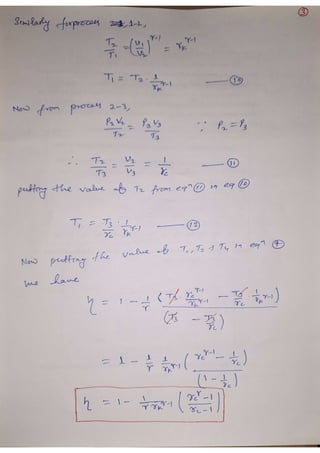 ③
Similarly for process 1-2,
T₂/T₁ = (V₁/V₂)^(γ-1) = r_k^(γ-1)
T₁ = T₂ · 1/r_k^(γ-1) —— ⑩
Now from process 2-3,
P₂V₂/T₂ = P₃V₃/T₃ ∵ P₂ = P₃
∴ T₂/T₃ = V₂/V₃ = 1/r_c —— ⑪
putting the value of T₂ from eqⁿ ⑪ in eq ⑩
T₁ = T₃/r_c · 1/r_k^(γ-1) —— ⑫
Now putting the value of T₁, T₂ & T₄ in eqⁿ ⑦
we have
η = 1 - 1/γ (T₃ r_c^(γ-1)/r_k^(γ-1) - T₃/r_c · 1/r_k^(γ-1)) / (T₃ - T₃/r_c)
= 1 - 1/γ · 1/r_k^(γ-1) (r_c^(γ-1) - 1/r_c) / (1 - 1/r_c)
η = 1 - 1/(γ r_k^(γ-1)) ((r_c^γ - 1)/(r_c - 1))